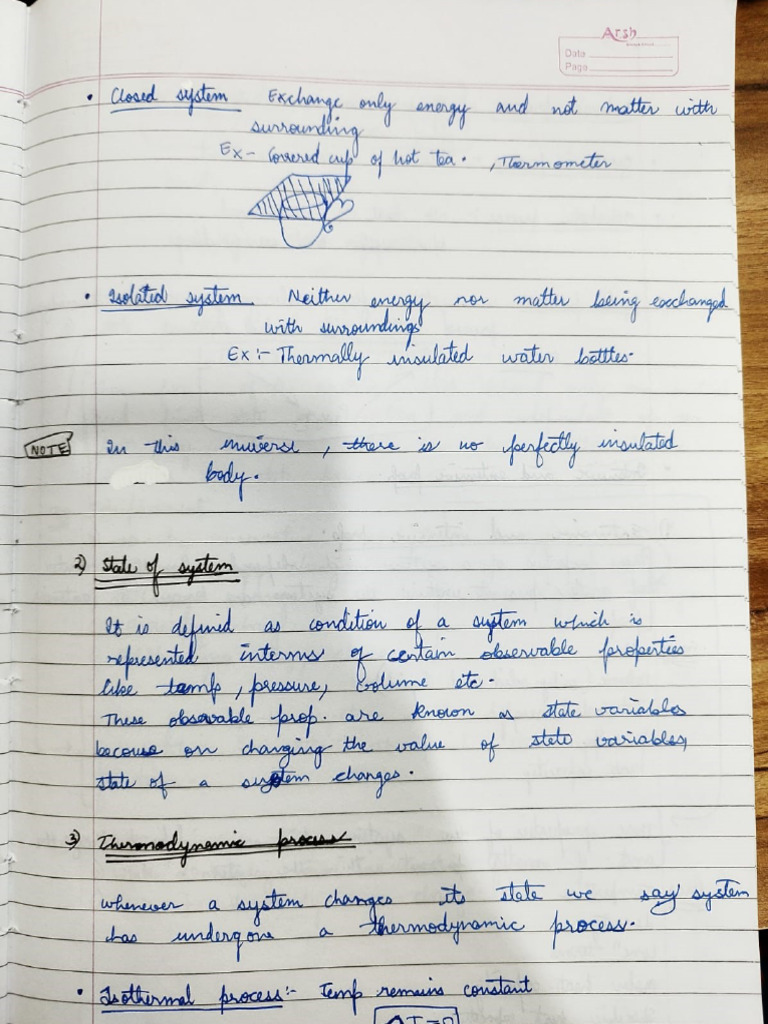 Arsh
Date
Page
• Closed system Exchange only energy and not matter with
surrounding
Ex - Covered cup of hot tea. , Thermometer
• Isolated system Neither energy nor matter being exchanged
with surroundings
Ex :- Thermally insulated water bottles.
NOTE In this universe, there is no perfectly insulated
body.
2) State of system
It is defined as condition of a system which is
represented interms of certain observable properties
like temp, pressure, volume etc.
These observable prop. are known as state variables
because on changing the value of state variables,
state of a system changes.
3) Thermodynamic process
whenever a system changes its state we say system
has undergone a thermodynamic process.
• Isothermal process :- Temp remains constant
ΔT=0